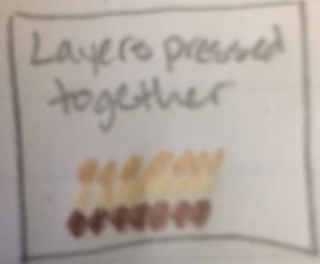 Layers pressed
together